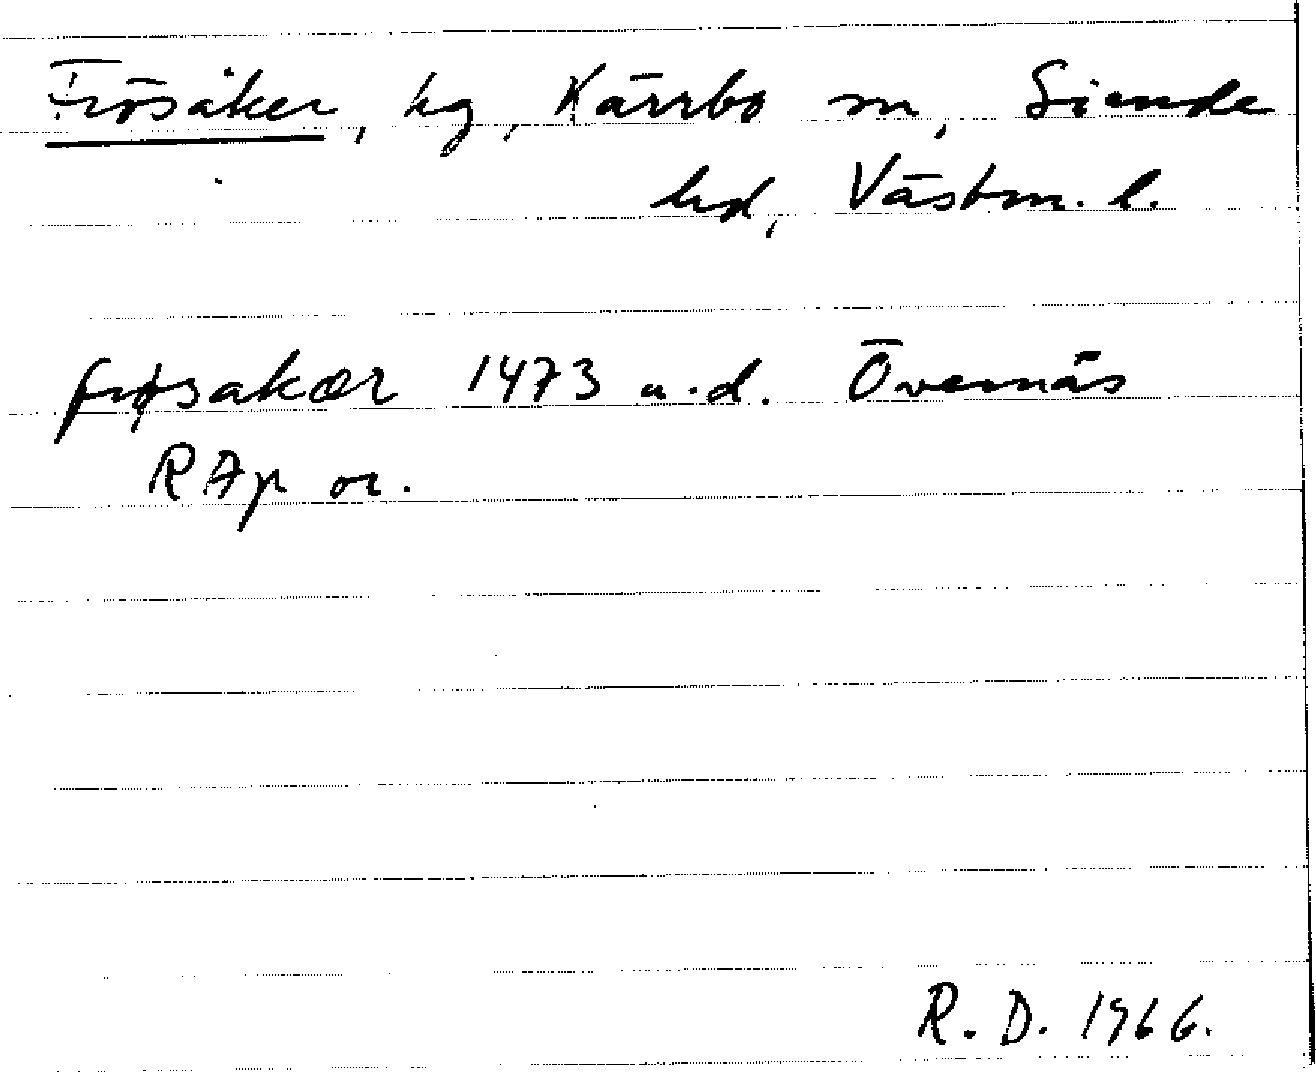 Frösåker, hg, Kärrbo sn, Siende
hd, Västm. l.
frøsakær 1473 u.d. Övernäs
RAp or.
R. D. 1966.